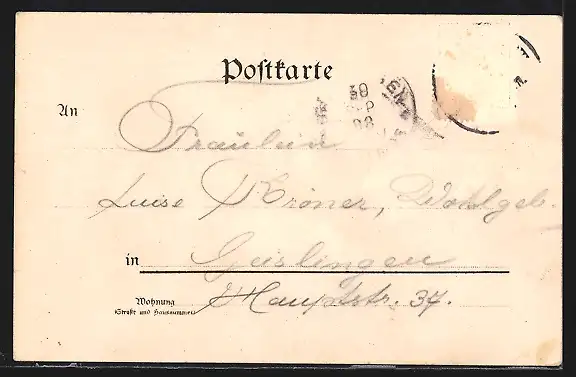 Postkarte
30
SEP
An
Fräulein
Luise Kröner, Wohlgeb.
in Geislingen
Wohnung
(Straße und Hausnummer)
Hauptstr. 37.